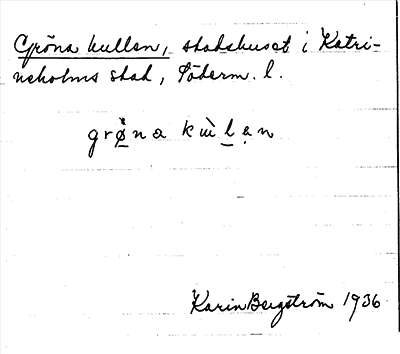 Gröna kullen, stadshuset i Katri-
neholms stad, Söderm. l.
grø̀na kù̀lan
Karin Bergström 1936